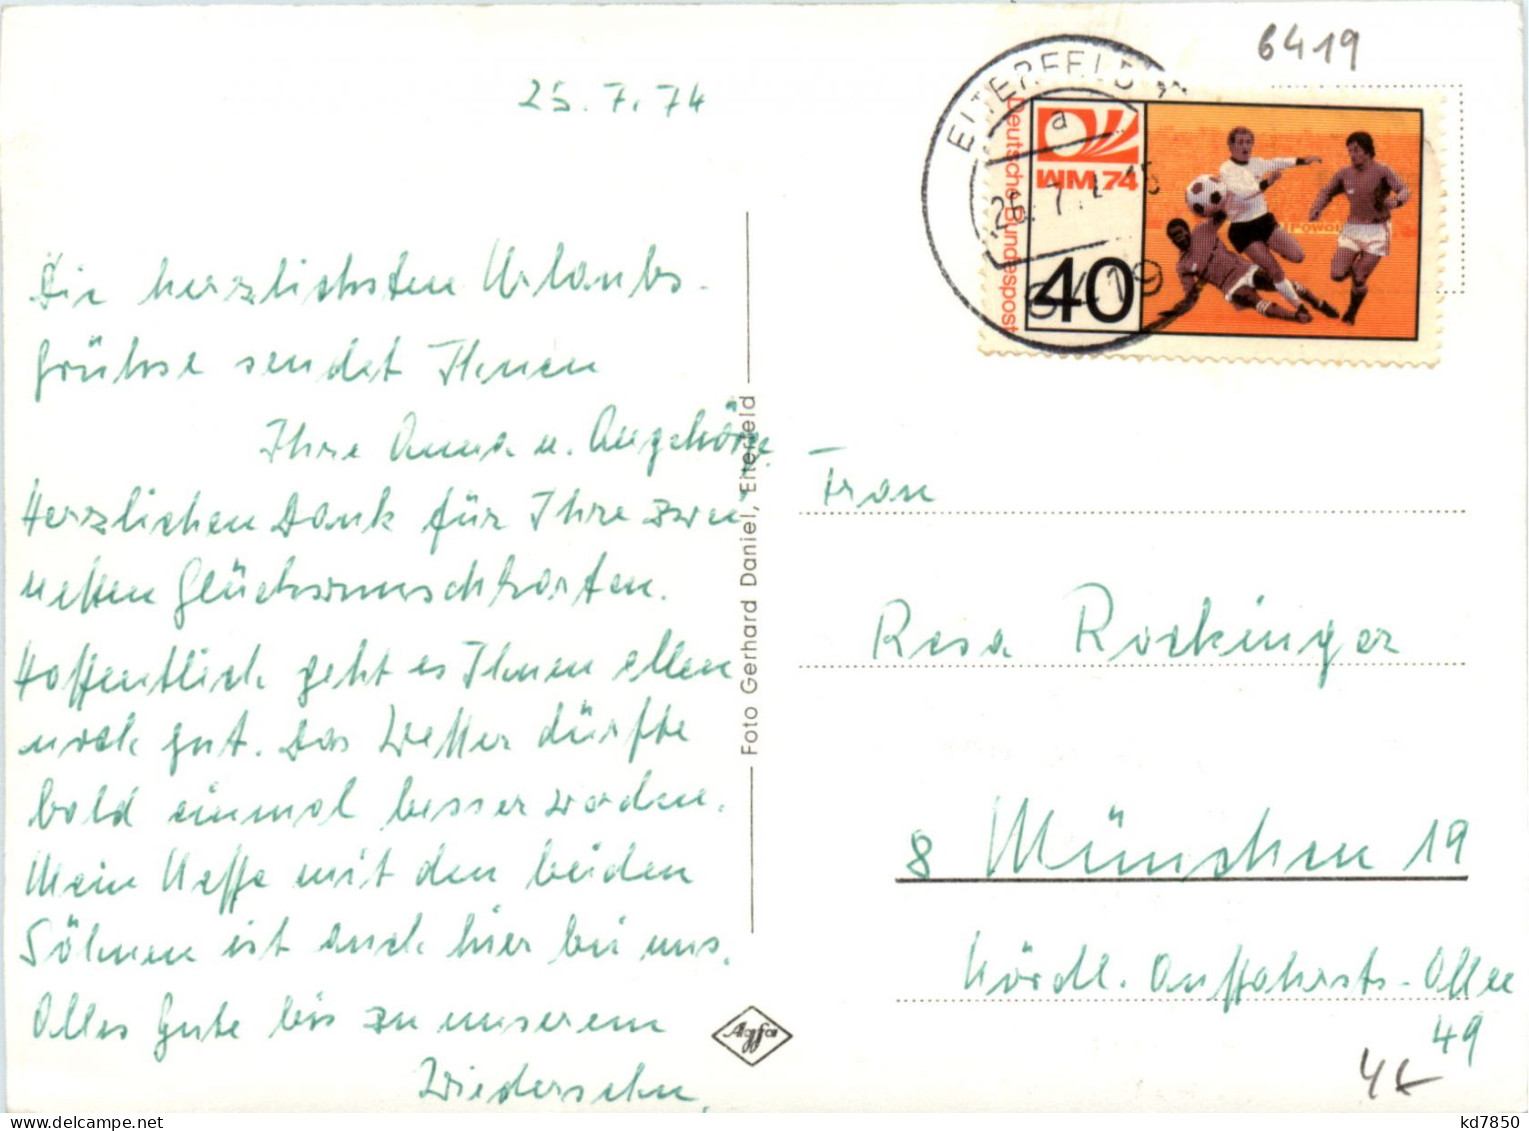 6419
25.7.74
EITERFELD
a
26.7.74-15
6419
Deutsche Bundespost
WM 74
40
Die herzlichsten Urlaubs-
grüsse sendet Ihnen
Ihre Anna u. Angehörg.
Herzlichen Dank für Ihre zwei
netten Glückwunschkarten.
Hoffentlich geht es Ihnen allen
noch gut. Das Wetter dürfte
bald einmal besser werden.
Mein Neffe mit den beiden
Söhnen ist auch hier bei uns.
Alles Gute bis zu unserem
Wiedersehn.
Foto Gerhard Daniel, Eiterfeld
Agfa
Frau
Resa Rockinger
8 München 19
Nördl. Auffahrts-Allee
49
4€
kd7850